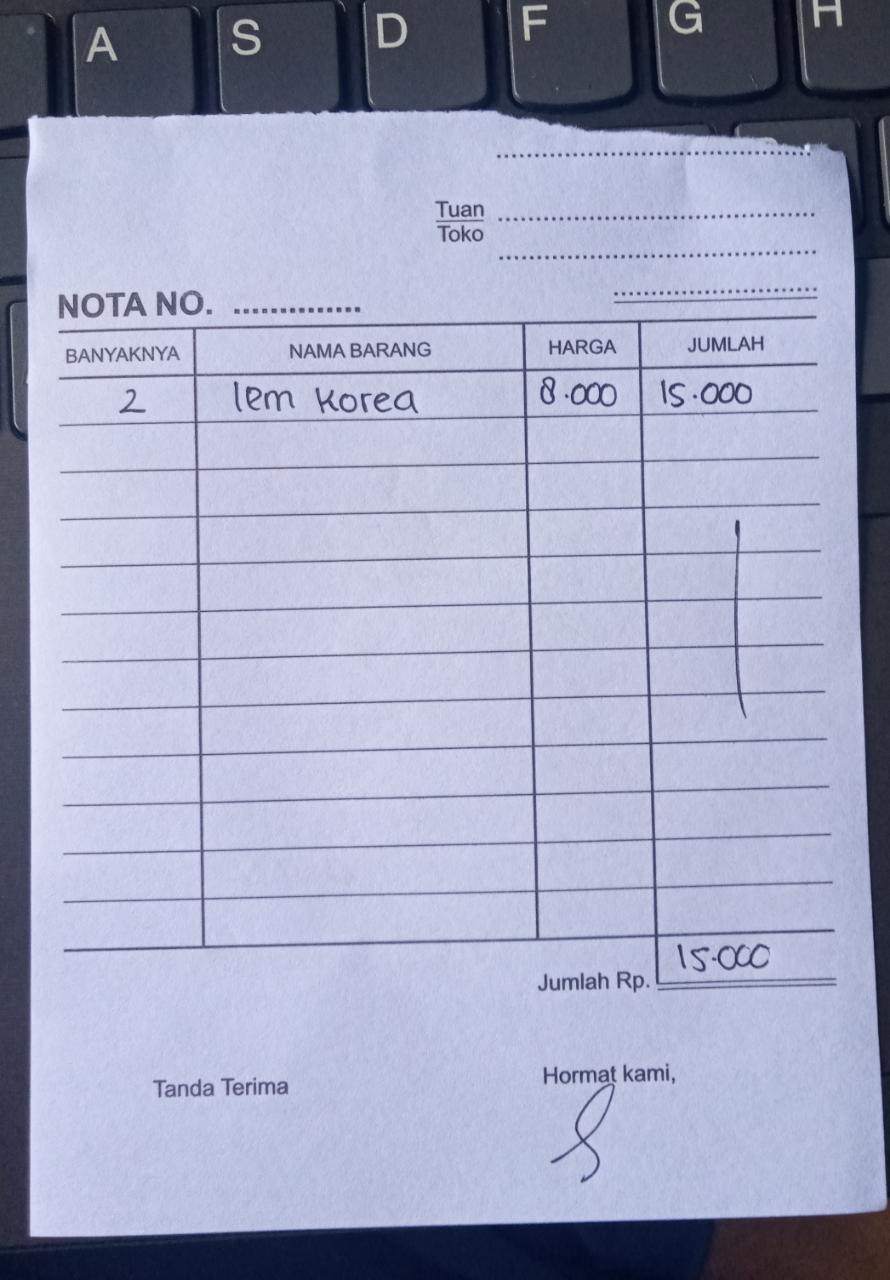 A S D F G H
Tuan
Toko
NOTA NO. ..............
BANYAKNYA NAMA BARANG HARGA JUMLAH
2 lem Korea 8.000 15.000
Jumlah Rp. 15.000
Tanda Terima Hormat kami,